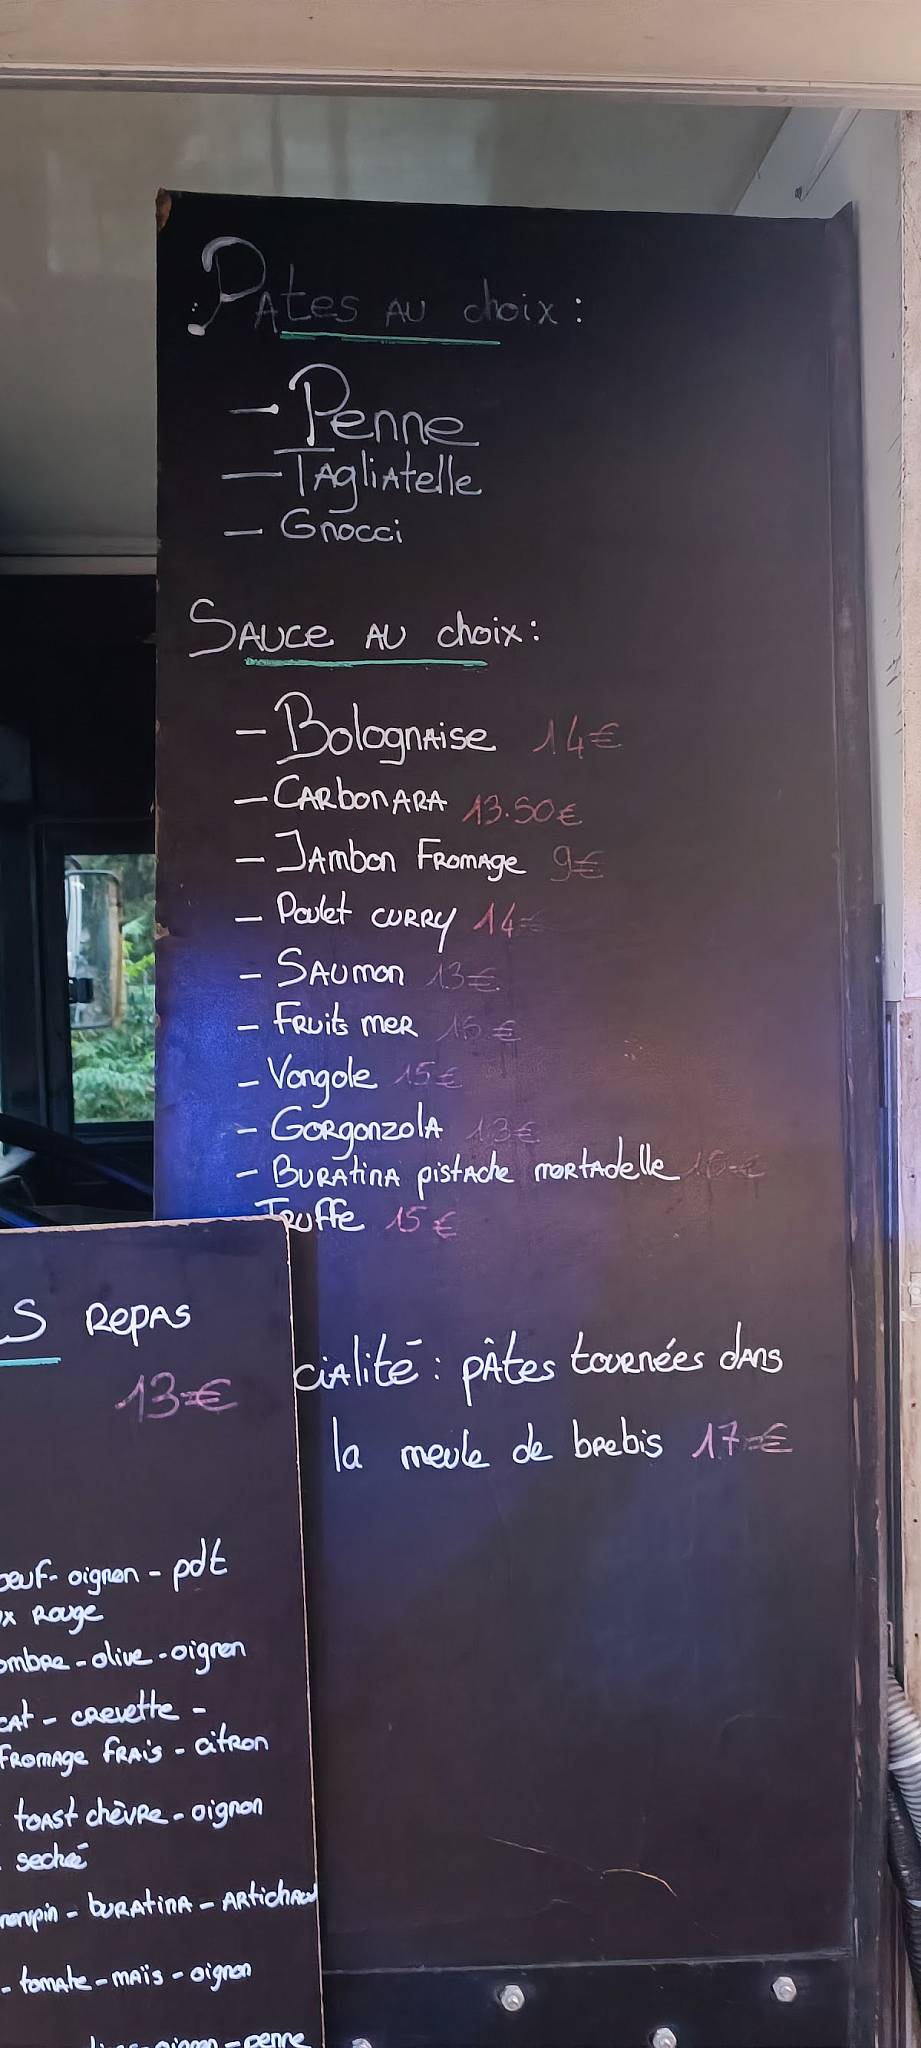 Pates au choix :
- Penne
- Tagliatelle
- Gnocci
Sauce au choix :
- Bolognaise 14€
- Carbonara 13.50€
- Jambon Fromage 9€
- Poulet curry 14€
- Saumon 13€
- Fruits mer €
- Vongole 15€
- Gorgonzola 13€
- Buratina pistache mortadelle €
Truffe 15€
cialité : pâtes tournées dans
la meule de brebis 17€
S Repas
13€
oeuf - oignon - pdt
x rouge
ombre - olive - oignon
cat - crevette -
fromage frais - citron
toast chèvre - oignon
seché
- buratina - artichau
- tomate - maïs - oignon
oignon - penne